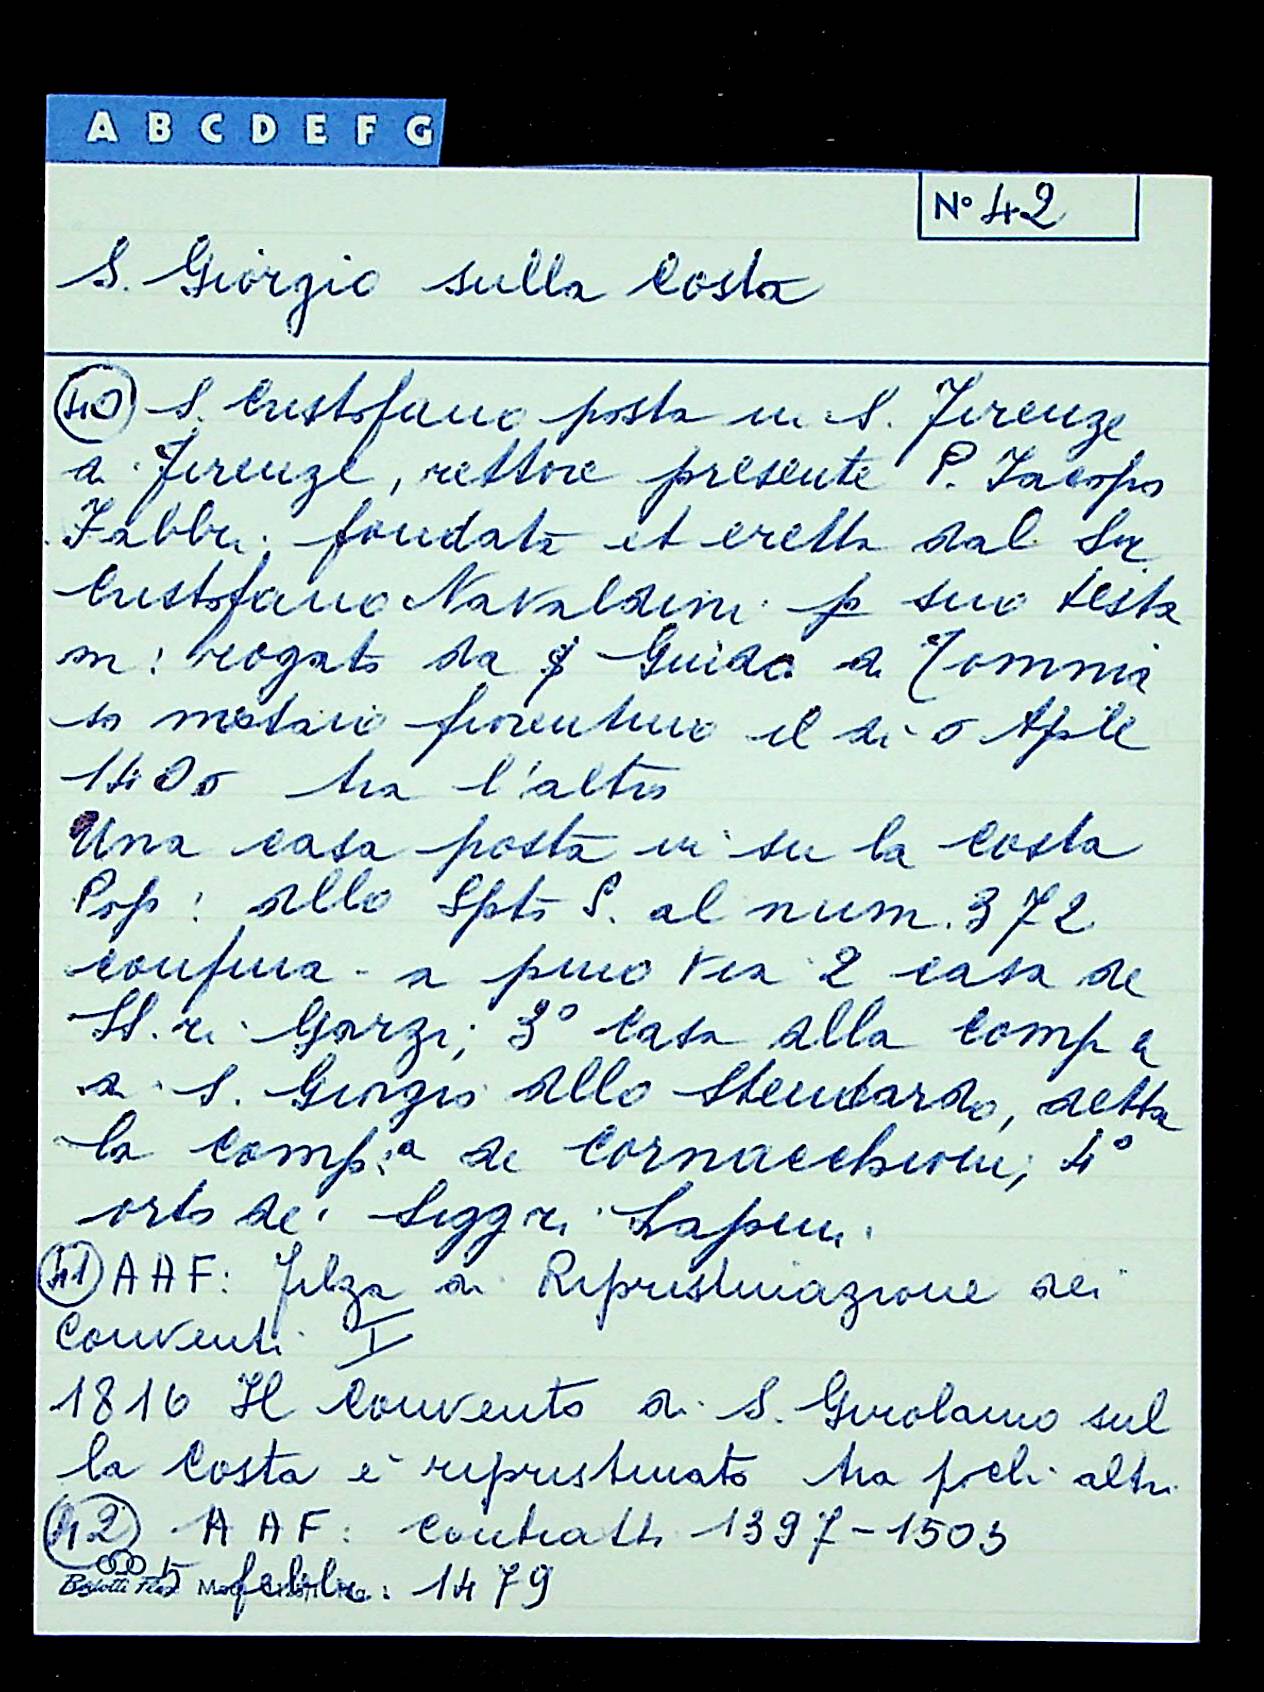 A B C D E F G
N° 42
S. Giorgio sulla Costa
40 S. Cristofano posta in S. Firenze
di Firenze, rettore presente P. Jacopo
Fabbri; fondata et eretta dal Ser
Cristofano Navaldini p suo testa
m: rogato da Guido di Tomma
so notaio fiorentino il di 5 Aple
1405 tra l'altro
Una casa posta in su la Costa
Pop: dello Spto S. al num. 372
confina a pmo Via 2 casa de
SS.ri Gorzi; 3° casa della Comp a
di S. Giorgio dello Stendardo, detta
la Comp:a de Cornacchioni; 4°
orto dei Siggri Lapini.
41 AAF: Filza di Ripristinazione dei
Conventi I
1816 Il Convento di S. Girolamo sul
la Costa è ripristinato tra pochi altri
42 AAF: Contratti 1397-1503
15 febbr: 1479